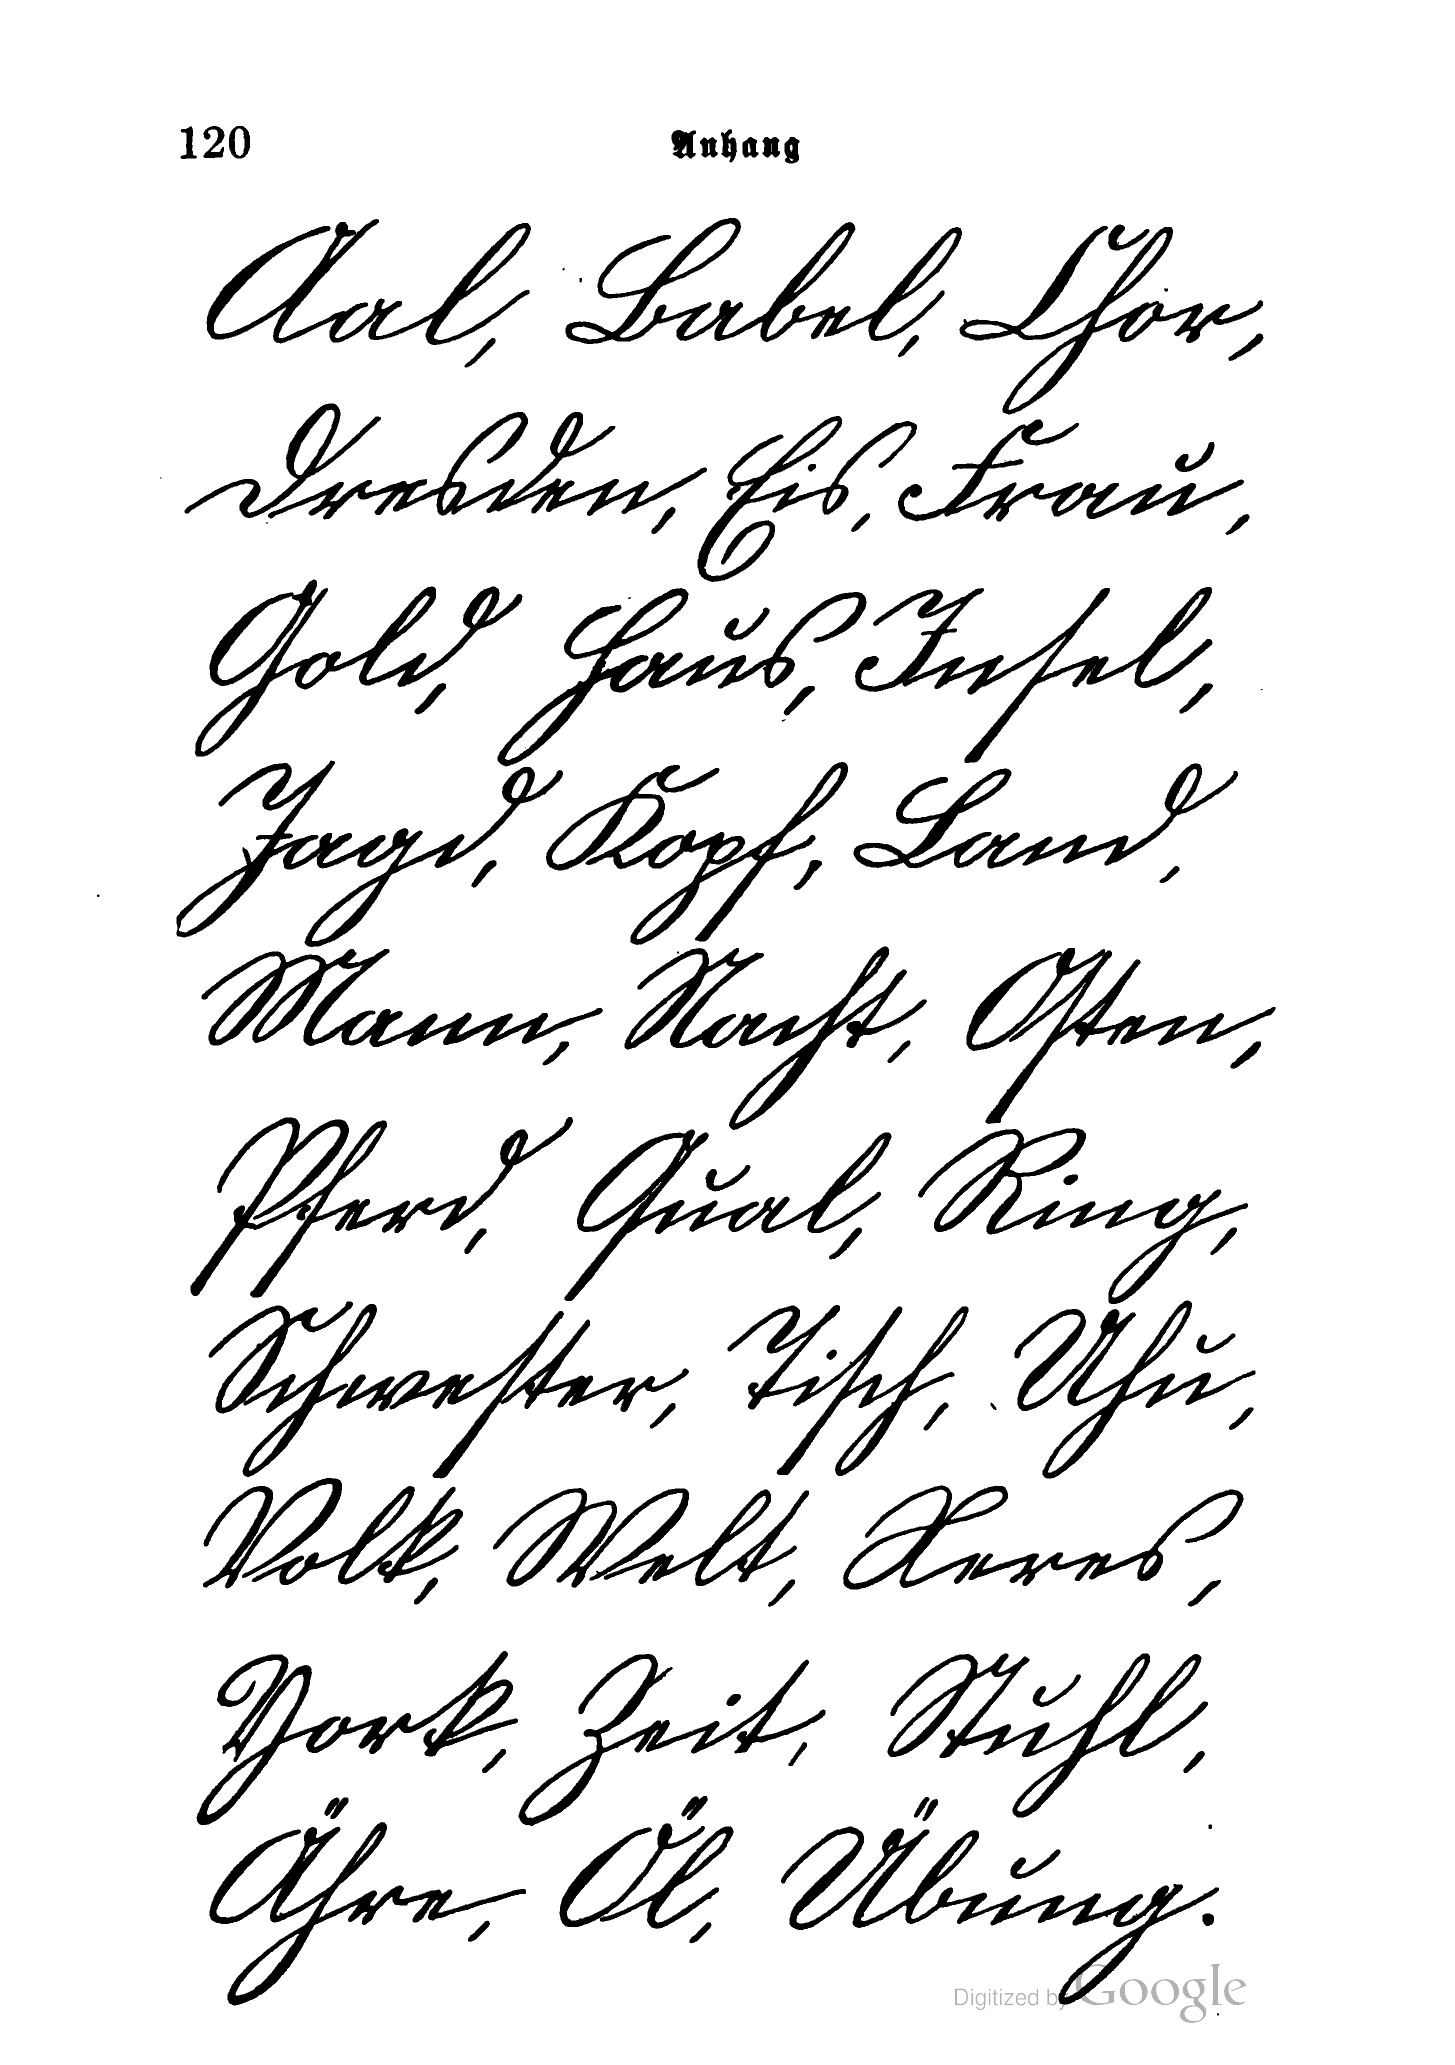 120 Anhang
Aal, Babel, Chor,
Dresden, Eis, Frau,
Gold, Haus, Insel,
Jagd, Kopf, Land,
Mann, Nacht, Osten,
Pferd, Qual, Ring,
Schwester, Tisch, Uhu,
Volk, Welt, Xeres,
York, Zeit, Stuhl,
Ähre, Öl, Übung.
Digitized by Google